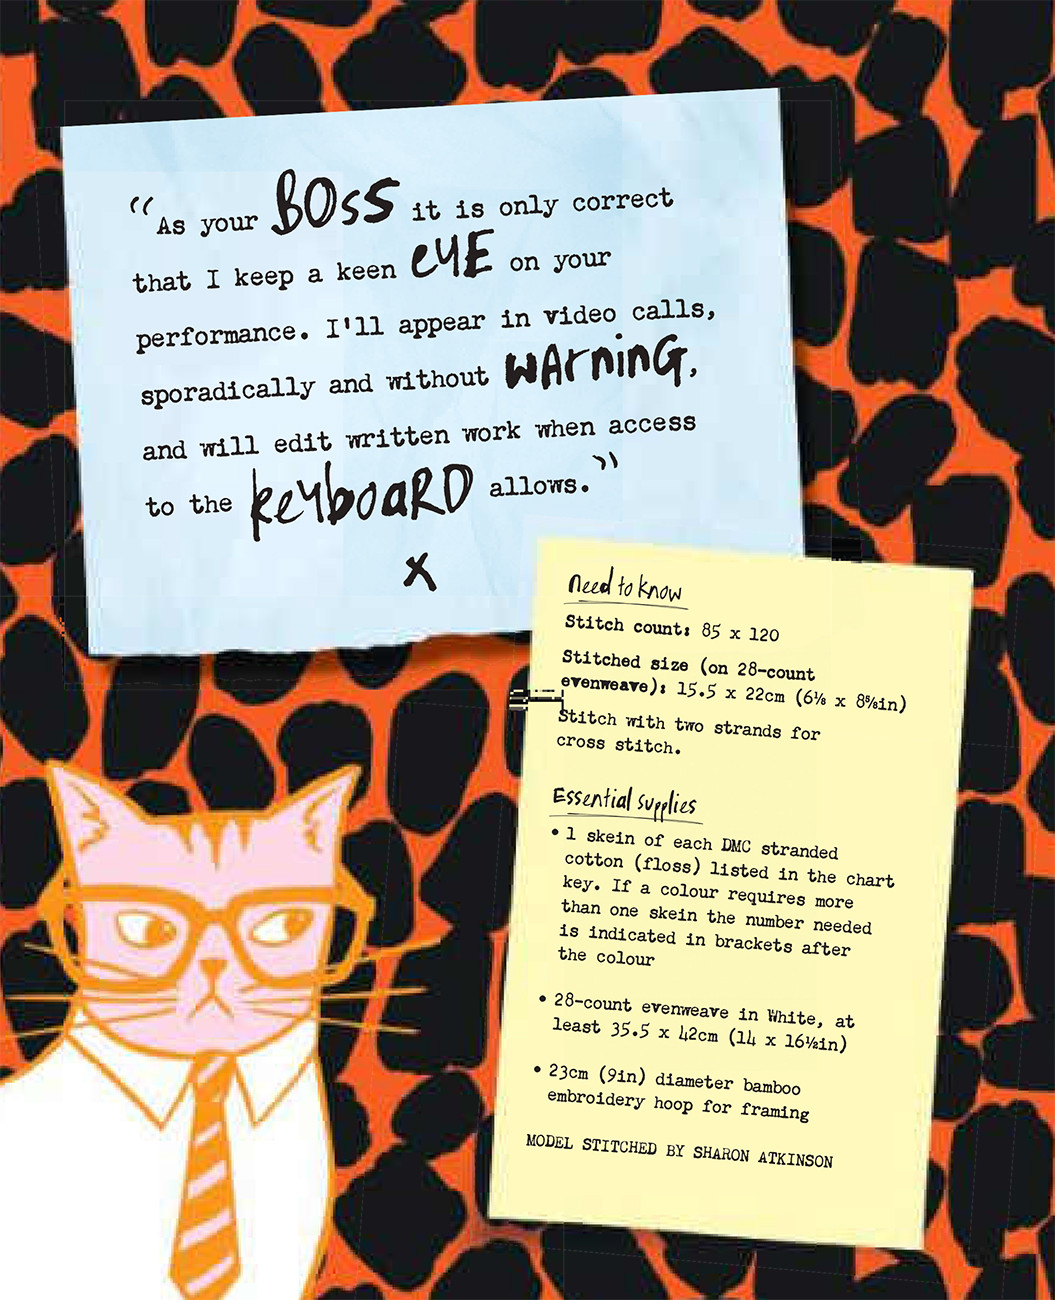 “As your BOSS it is only correct
that I keep a keen EYE on your
performance. I'll appear in video calls,
sporadically and without WARNING,
and will edit written work when access
to the KEYBOARD allows.”
x
Need to know
Stitch count: 85 x 120
Stitched size (on 28-count
evenweave): 15.5 x 22cm (6⅛ x 8⅝in)
Stitch with two strands for
cross stitch.
Essential supplies
• 1 skein of each DMC stranded
cotton (floss) listed in the chart
key. If a colour requires more
than one skein the number needed
is indicated in brackets after
the colour
• 28-count evenweave in White, at
least 35.5 x 42cm (14 x 16½in)
• 23cm (9in) diameter bamboo
embroidery hoop for framing
MODEL STITCHED BY SHARON ATKINSON